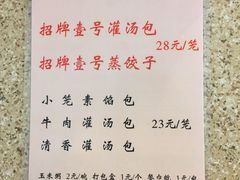 招牌壹号灌汤包
28元/笼
招牌壹号蒸饺子
小笼素馅包
牛肉灌汤包 23元/笼
清香灌汤包
玉米粥 2元/碗 打包盒 1元/个